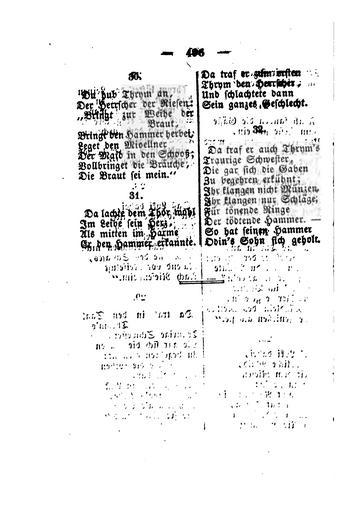 — 496 —
30.
Da hub Thrym an,
Der Herrscher der Riesen:
„Bringt zur Weihe der
Braut,
Bringt den Hammer herbei,
Leget den Miöllner
Der Maid in den Schooß;
Vollbringet die Bräuche,
Die Braut sei mein.“
31.
Da lachte dem Thor wohl
Im Leibe sein Herz,
Als mitten im Harme
Er den Hammer erkannte.
Da traf er zum ersten
Thrym den Herrscher,
Und schlachtete dann
Sein ganzes Geschlecht.
32.
Da traf er auch Thrym's
Traurige Schwester,
Die gar sich die Gaben
Zu begehren erkühnt;
Ihr klangen nicht Münzen,
Ihr klangen nur Schläge,
Für tönende Ringe
Der tödtende Hammer. —
So hat seinen Hammer
Odin's Sohn sich geholt.